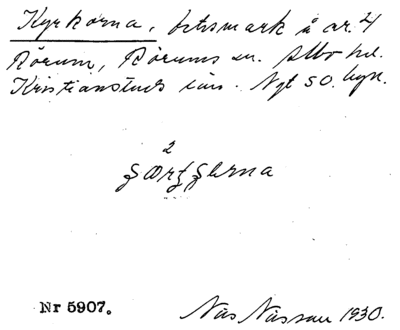 Kyrkorna, betesmark å nr. 4
Rörum, Rörums sn. Albo hd.
Kristianstads län. Nyt SO. kyrk.
2
Nr 5907.
Nils Nässau 1930.